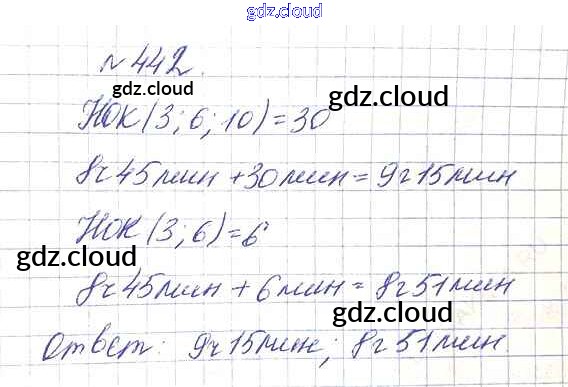 gdz.cloud
№442.
gdz.cloud
gdz.cloud
НОК(3;6;10)=30
gdz.cloud
8ч45мин+30мин=9ч15мин
НОК(3;6)=6
gdz.cloud
gdz.cloud
8ч45мин+6мин=8ч51мин
gdz.cloud
Ответ: 9ч15мин; 8ч51мин.